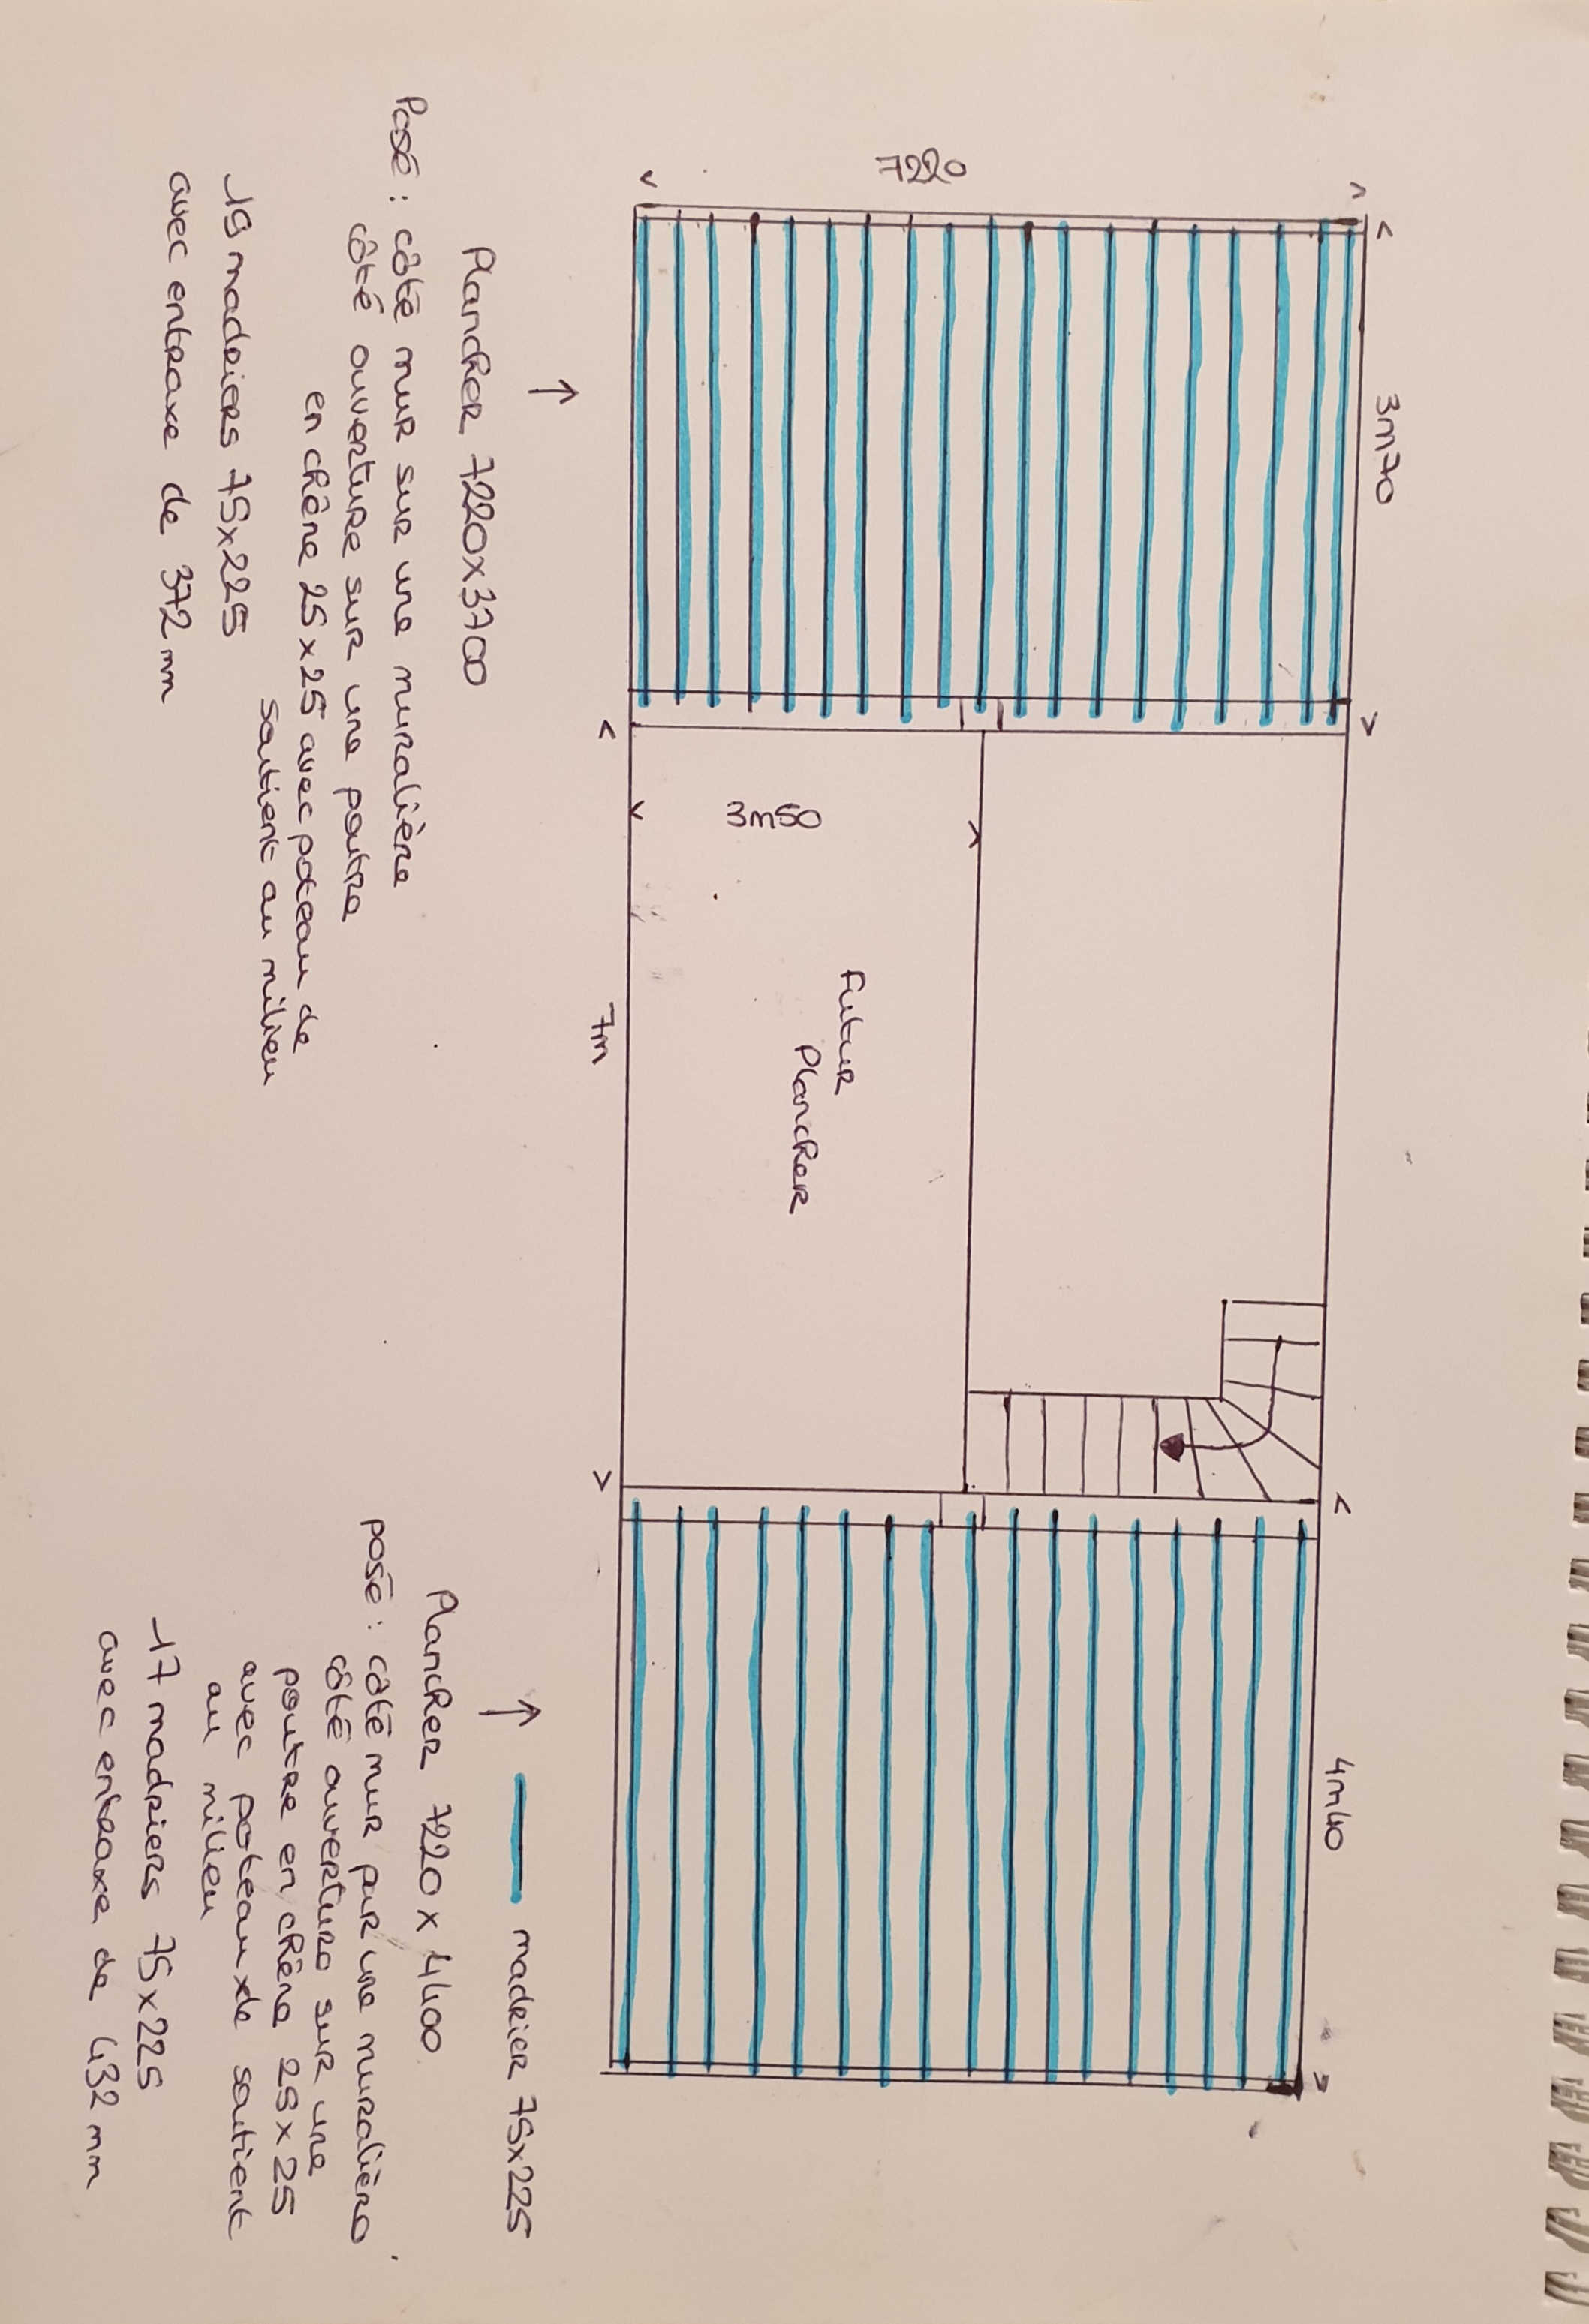 7220
3m70
3m50
Futur
Plancher
7m
4m40
madrier 75x225
Plancher 7220x3700
Posé : côté mur sur une muralière
côté ouverture sur une poutre
en chêne 25x25 avec poteau de
soutient au milieu
19 madriers 75x225
avec entraxe de 372 mm
Plancher 7220 x 4400
posé : côté mur par une muralière
côté ouverture sur une
poutre en chêne 25x25
avec poteaux de soutient
au milieu
17 madriers 75x225
avec entraxe de 432 mm